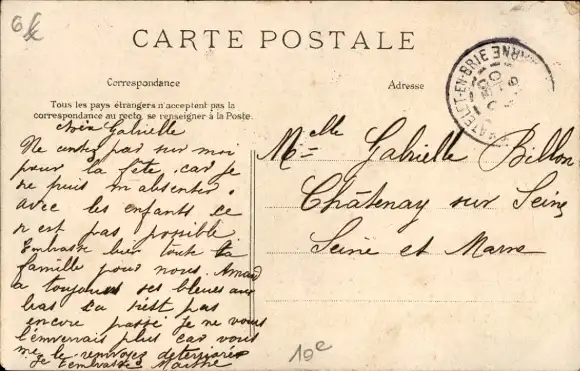 CARTE POSTALE
Correspondance
Adresse
Tous les pays étrangers n'acceptent pas la
correspondance au recto, se renseigner à la Poste.
CHATELET-EN-BRIE
Chère Gabrielle
Ne contez pas sur moi
pour la fête, car je
ne puis m'absenter
avec les enfants ce
n'est pas possible
Embrasse bien toute ta
famille pour nous. Armand
a toujours ses bleues aux
bras ça n'est pas
encore passé je ne vous
l'enverrais plus car vous
me le renvoyez déterriorés
Je t'embrasse
Melle Gabrielle Billon
Châtenay sur Seine
Seine et Marne
10e